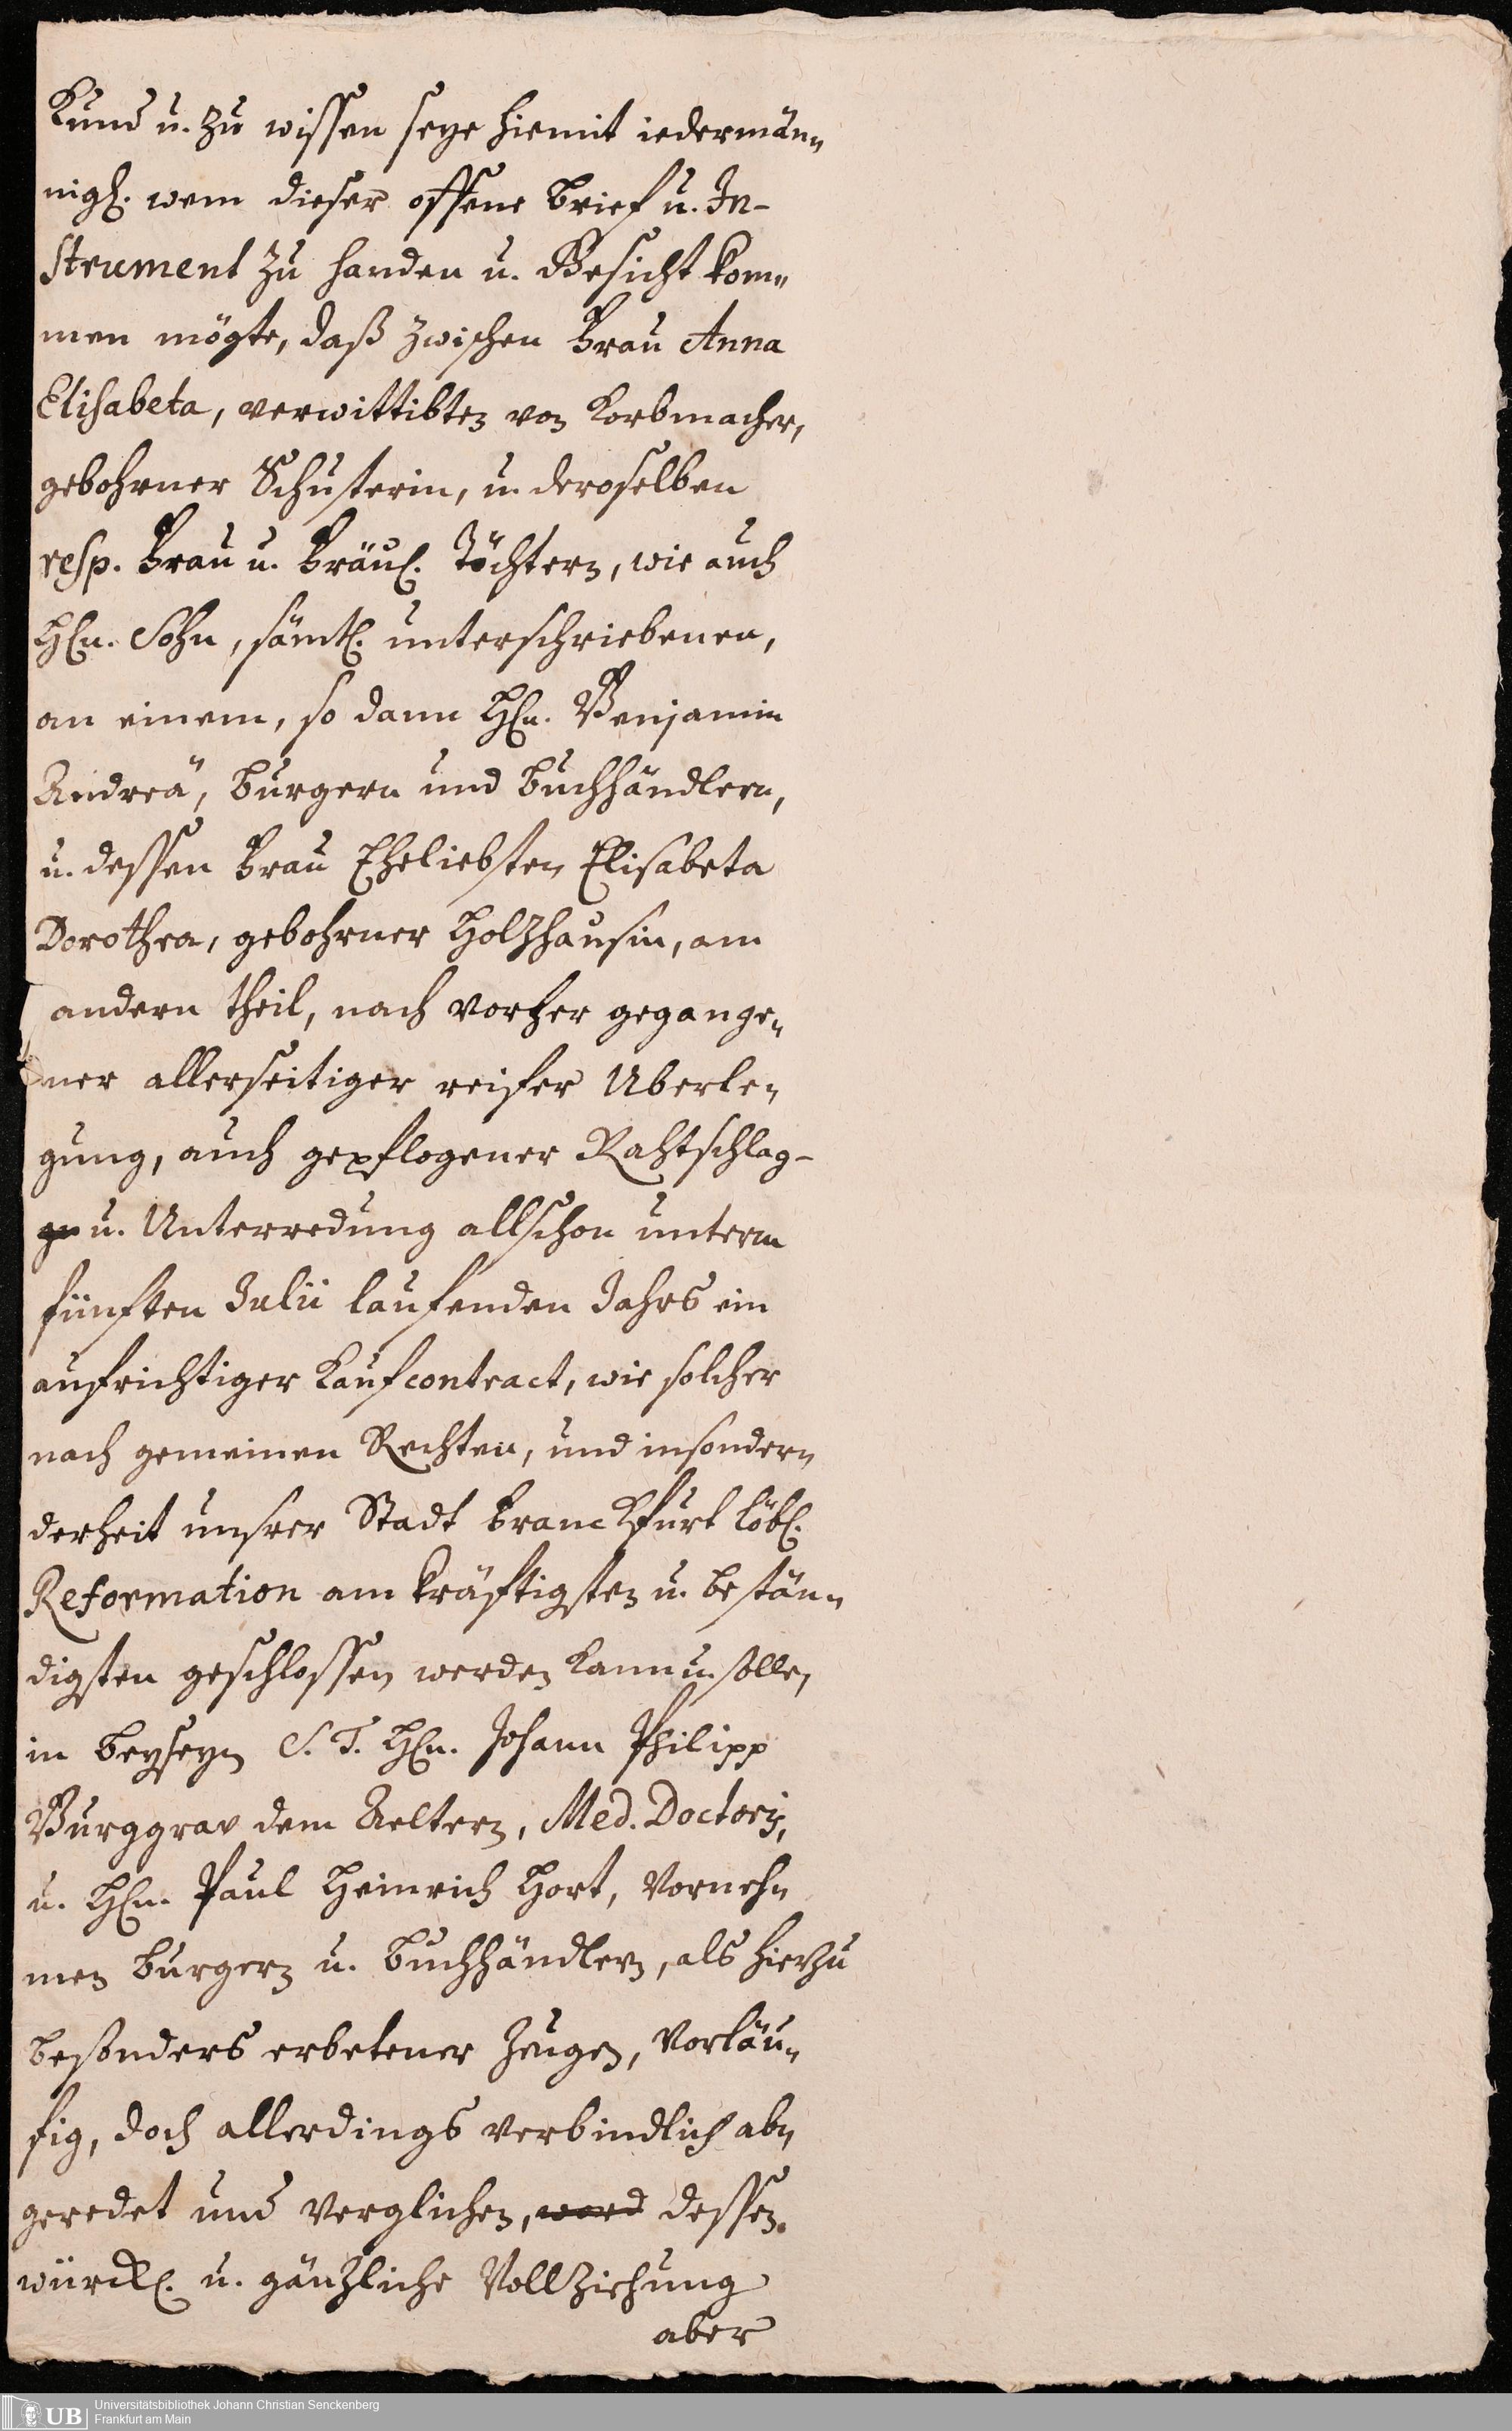 Kund u. zu wissen seye hiemit iedermän-
nigl. wem dieser offene Brief u. In-
strument zu handen u. Gesicht kom-
men mögte, daß zwischen Frau Anna
Elisabeta, verwittibten von Korbmacher,
gebohrner Schusterin, u. deroselben
resp. Frau u. Fräul. Töchtern, wie auch
Hln. Sohn, sämtl. unterschriebenen,
an einem, so dann Hln. Benjamin
Andreä, Burgern und Buchhändlern,
u. dessen Frau Eheliebsten Elisabeta
Dorothea, gebohrner Holzhausin, am
andern theil, nach vorher gegange-
ner allerseitiger reifer Uberle-
gung, auch gepflogener Rahtschlag-
ge u. Unterredung allschon unterm
fünften Julii laufenden Jahrs ein
aufrichtiger Kaufcontract, wie solcher
nach gemeinen Rechten, und insondern
derheit unsrer Stadt Franckfurt löbl.
Reformation am kräftigsten u. bestän-
digsten geschlossen werden kann u. solle,
in beyseyn S. T. Hln. Johann Philipp
Burggrav dem Aeltern, Med. Doctoris,
u. Hln. Paul Heinrich Hort, Vorneh-
men Burgern u. Buchhändlern, als hierzu
besonders erbetener Zeugen, vorläu-
fig, doch allerdings verbindlich ab-
geredet und verglichen, ward dessen
würckl. u. gänzliche Vollziehung
aber
UB
Universitätsbibliothek Johann Christian Senckenberg
Frankfurt am Main